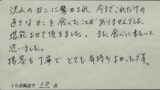 沢山のカニに驚かされ、今までこれだけの
量でカニを食べたことがありませんでした。
堪能させて頂きました。また、食べに来たいと
思いました。
接客も丁寧で とても気持ちよかったです。
10点満点で 10 点